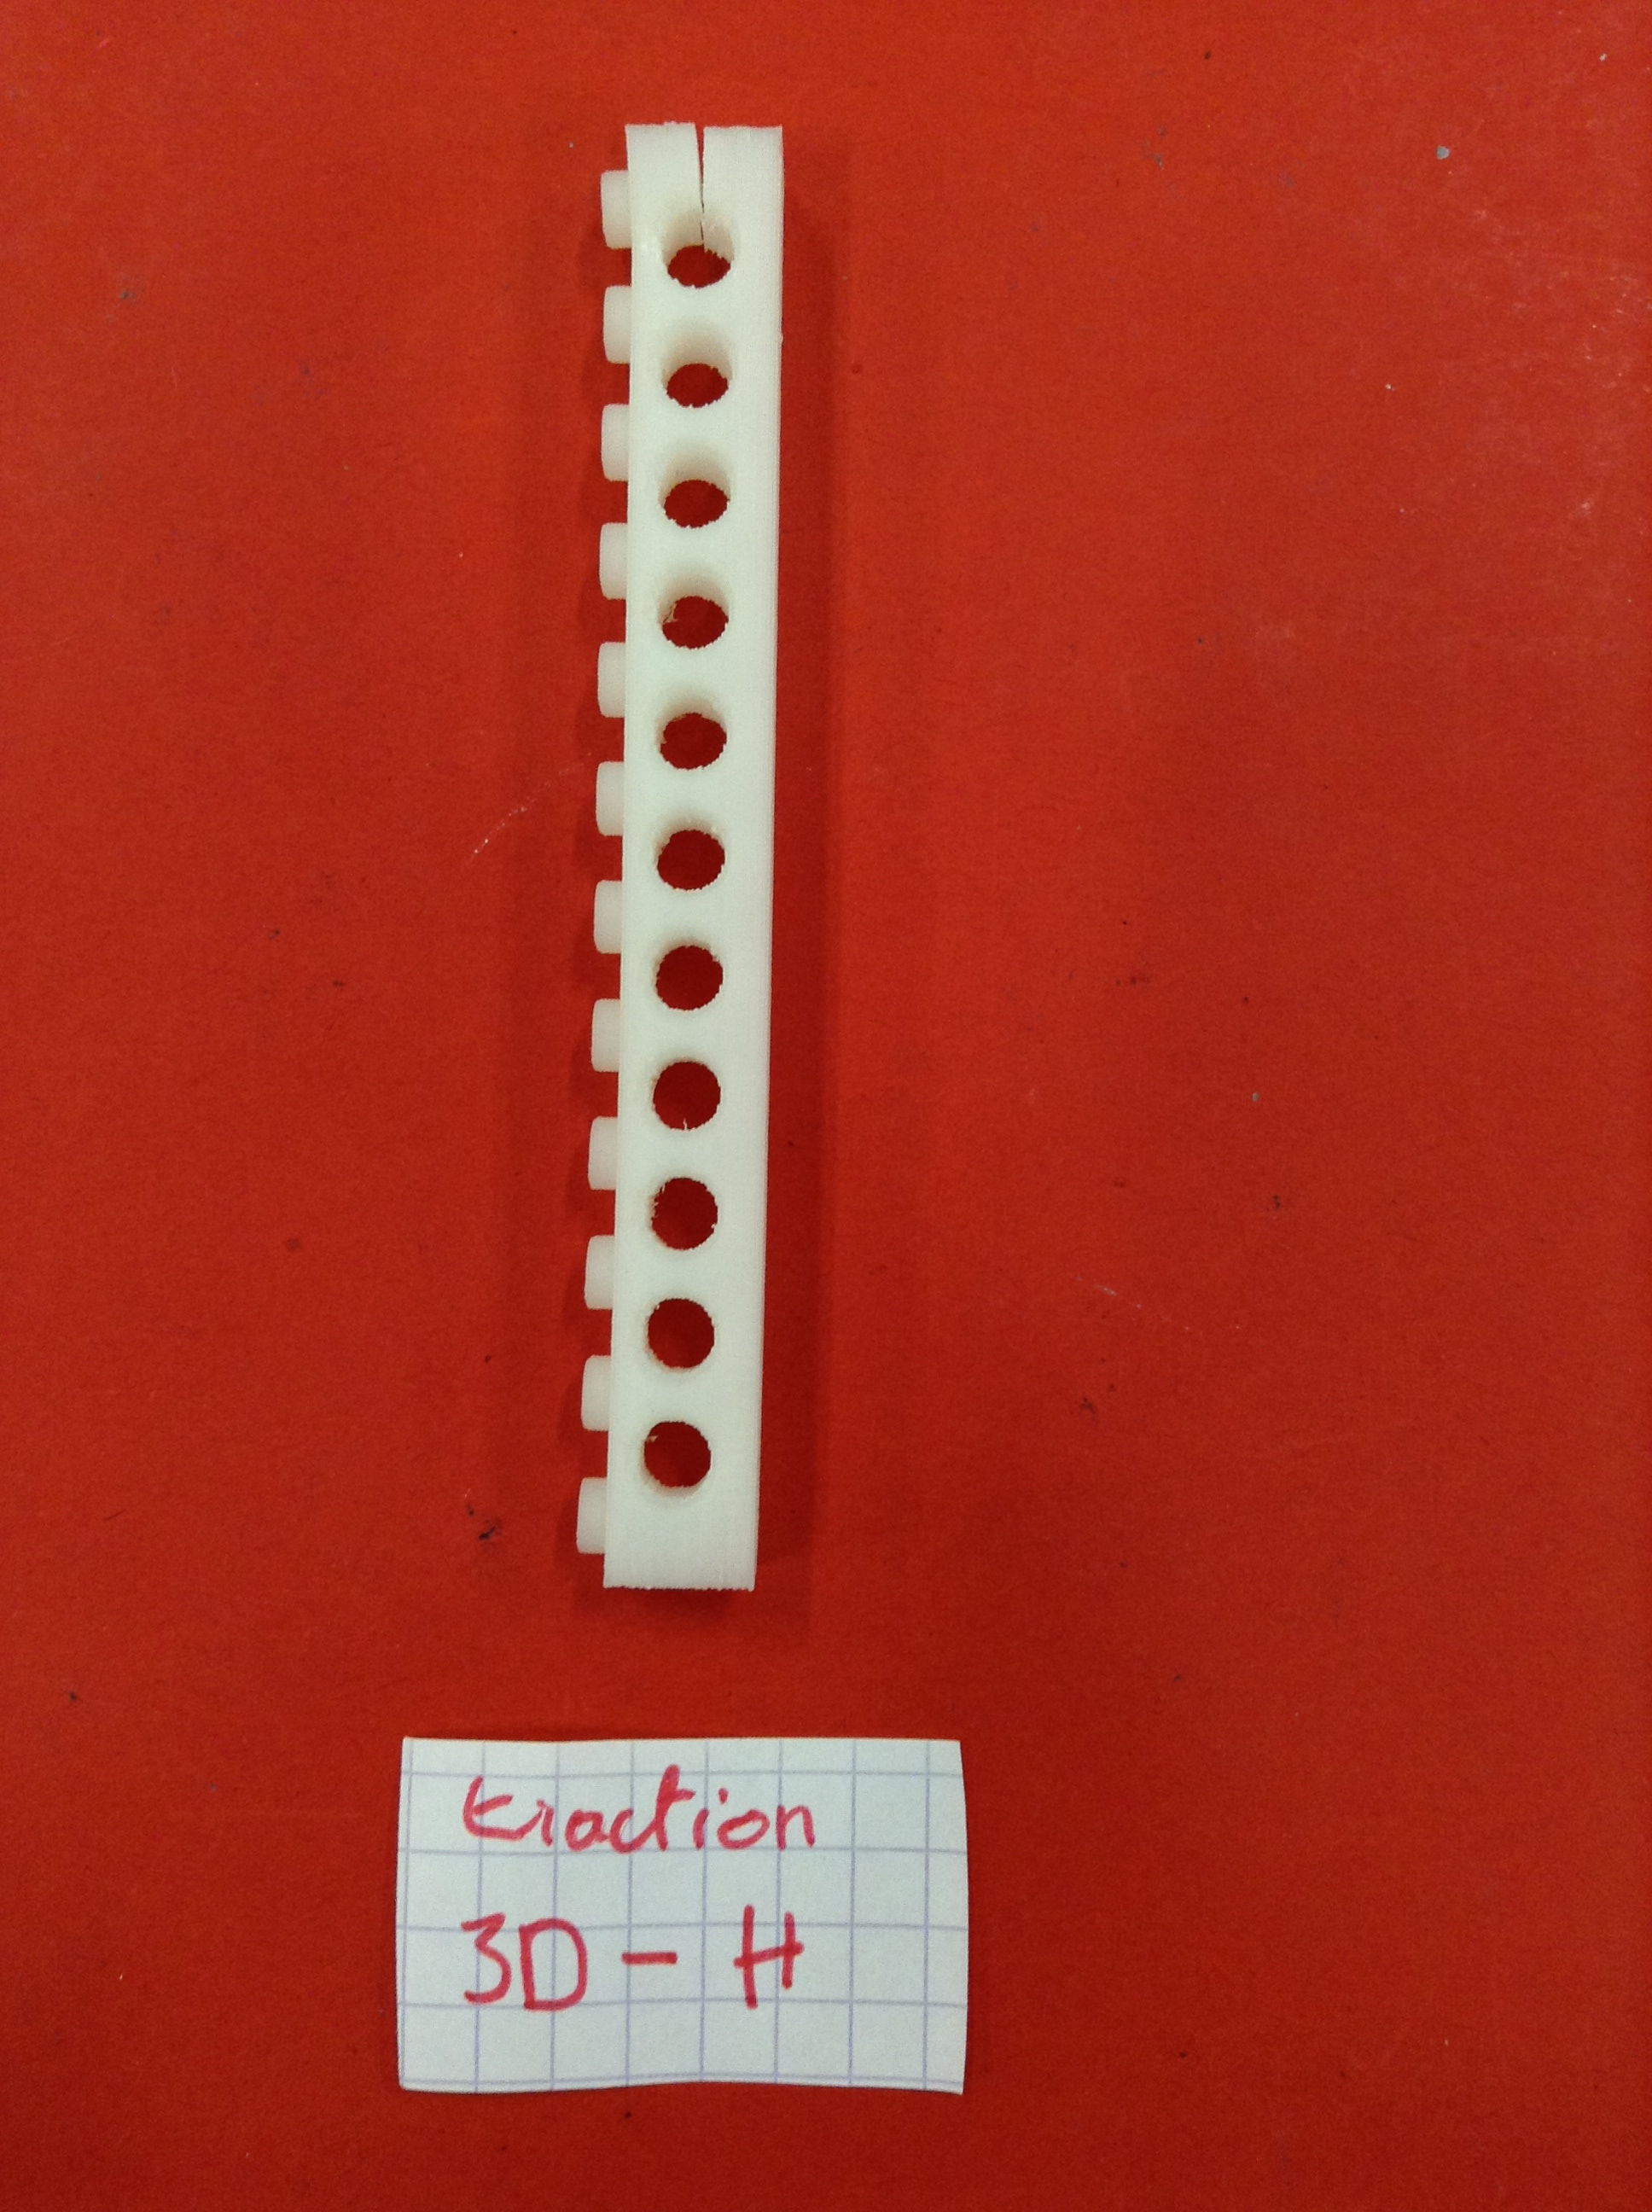 traction
3D - H